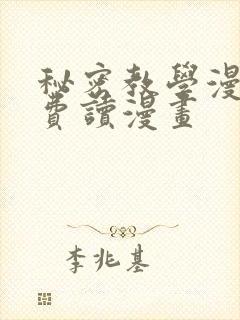 秘密教學漫
費讀漫畫
李兆基